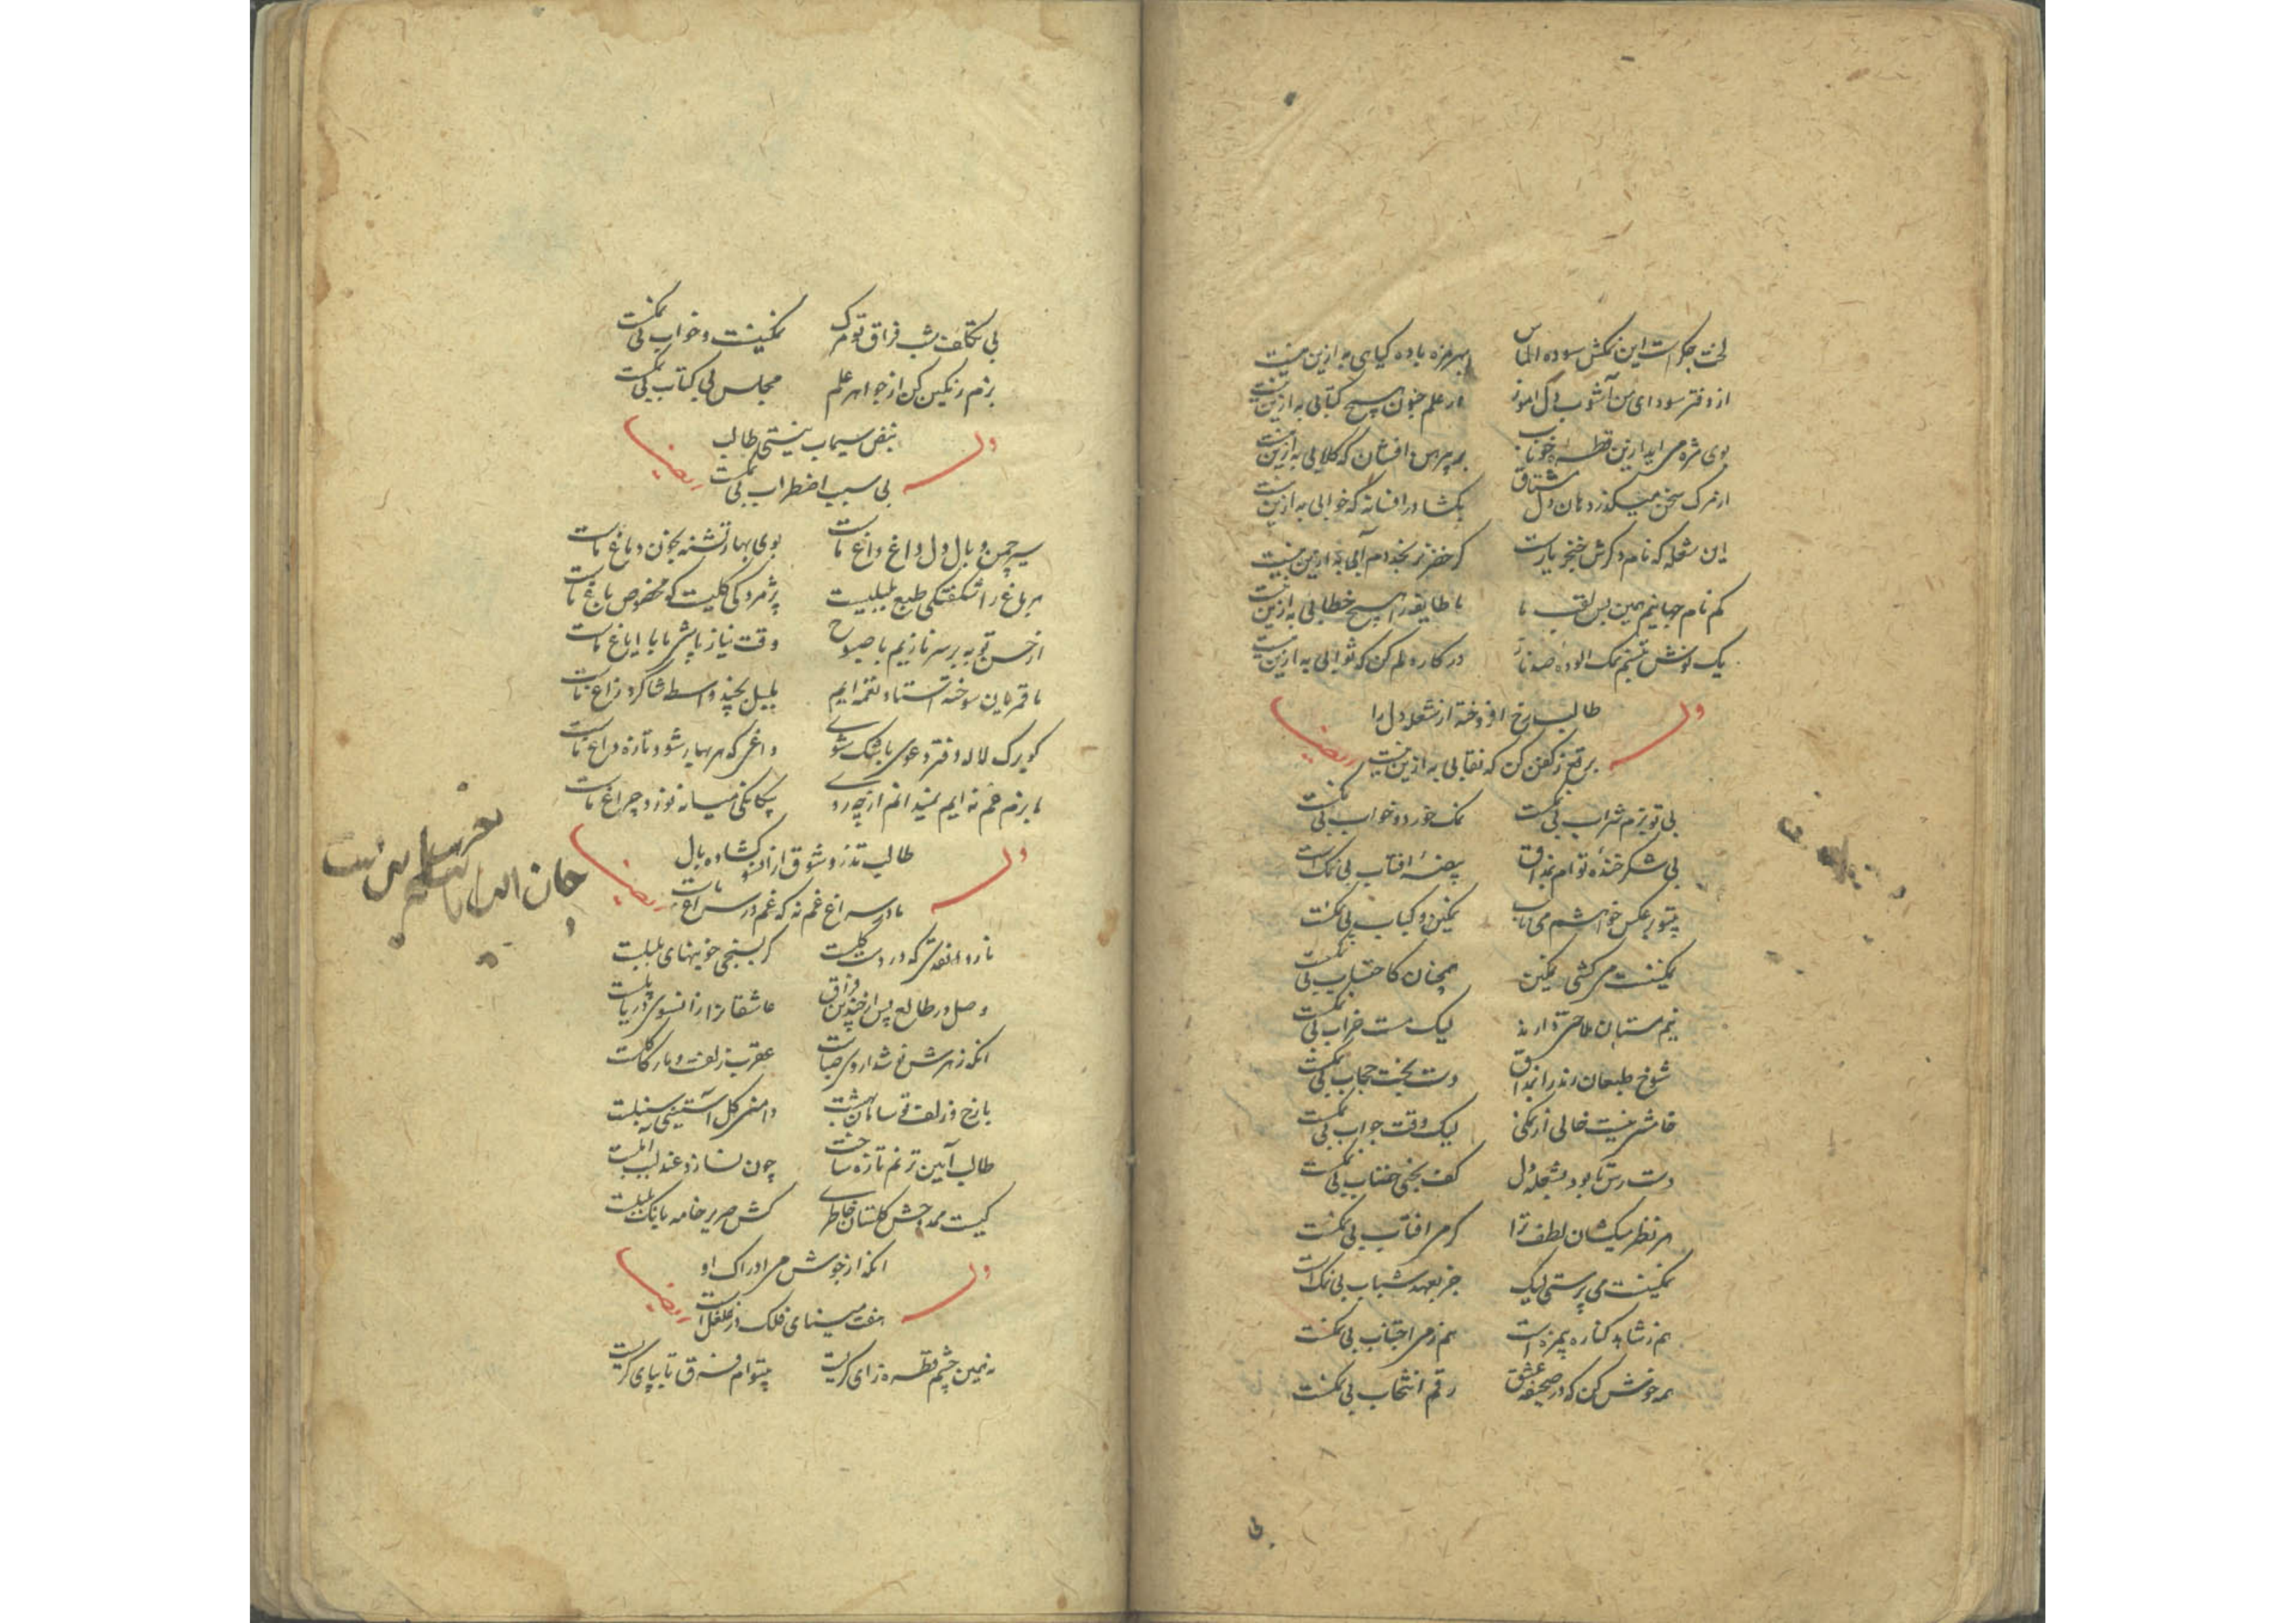 لخت جگر است این نمکش سوده الماس بهر مزه باده کبابی به ازین نیست
از دفتر سودای من آشوب دل اموز در علم جنون هیچ کتابی به ازین نیست
بوی مژه می اید ازین قطره خوناب بر پیرهن افشان که کلابی به ازین نیست
از مرک سخن میکذرد هان دل مشتاق بکشا در افسانه که خوابی به ازین نیست
این شعله که نام دکرش خنجر یارست کر خضر نرنجد دم آبی به ازین نیست
کم نام جهانیم همین بس لقب ما با طایفه را هیچ خطابی به ازین نیست
یک نوش تبسم نمک الوده صد ناز در کار دلم کن که ثوابی به ازین نیست
طالب رخ افروخته از شعله دل را
وله
برقع ز کفن کن که نقابی به ازین نیست
ایضا
بی تو بزم شراب بی نمکست نمک خورد و خواب بی نمکست
بی شکر خنده تو ام بمذاق بیضهٔ افتاب بی نمک است
بیتو بر عکس خواهشم می ناب نمکین و کباب بی نمکست
نمکینست می کشی نمکین همچنان کاحتساب بی نمکست
نیم مستان ملاحتی دارند لیک مست خراب بی نمکست
شوخ طبعان رند را بمذاق دست بخت حجاب بی نمکست
خامشی نیست خالی از نمکی لیک وقت جواب بی نمکست
دست رس تا بود بشعله دل کف بختی خضاب بی نمکست
هر نظر میکشان لطف ترا کرمی افتاب بی نمکست
نمکینست می پرستی لیک جز بعهد شباب بی نمک است
هم ز شاهد کناره بیمزه است هم ز می اجتناب بی نمکست
همه خوش کن که در صحیفه عشق رقم انتخاب بی نمکست
بی تکلف شب فراق تو مرک نمکینست و خواب بی نمکست
بزم رنکین کن از جواهر علم مجلس بی کتاب بی نمکست
نبض سیماب نیستی طالب
وله
بی سبب اضطراب بی نمکست
ایضا
سیر چمن وبال دل داغ داغ ماست بوی بهار تشنه بخون دماغ ماست
هر باغ را شکفتکی طبع بلبلیست پژمردکی کلیست که مخصوص باغ ماست
از حسن توبه بر سر نازیم با صبوح وقت نیاز باش ما با ایاغ ماست
ما قمریان سوخته استاد نغمه ایم بلبل بچند واسطه شاکرد زاغ ماست
کو برک لاله دفتر دعوی باشک شوی داغی که هر بهار شود تازه داغ ماست
ما بزم غم نه ایم نمیدانم از چه روی بیکانکی میانه نور و چراغ ماست
طالب تذرو شوق از انسو کشاده بال
وله
ما در سراغ غم نه که غم در سراغ ماست
ایضا
ناز دارد نغمتی که در دست کلست کر بسنجی خونبهای بلبلست
وصل در طالع پس از چندین فراق عاشقانرا از انسوی دریا پلست
انکه زهرش نوشداروی صباست عقرب زلفت و مار کاکلست
با رخ و زلف تو سامان بهشت دامنی کل آستینی سنبلست
طالب آیین ترنم تازه ساخت چون نسازد عندلیب املست
کیست ممدوحش کلستان خاطری کش صریر خامه بانک بلبلست
انکه از جوش می ادراک او
وله
هفت مینای فلک در غلغل است
ایضا
نه همین چشم قطره زای کریست بیتو ام فرق تا بپای کریست